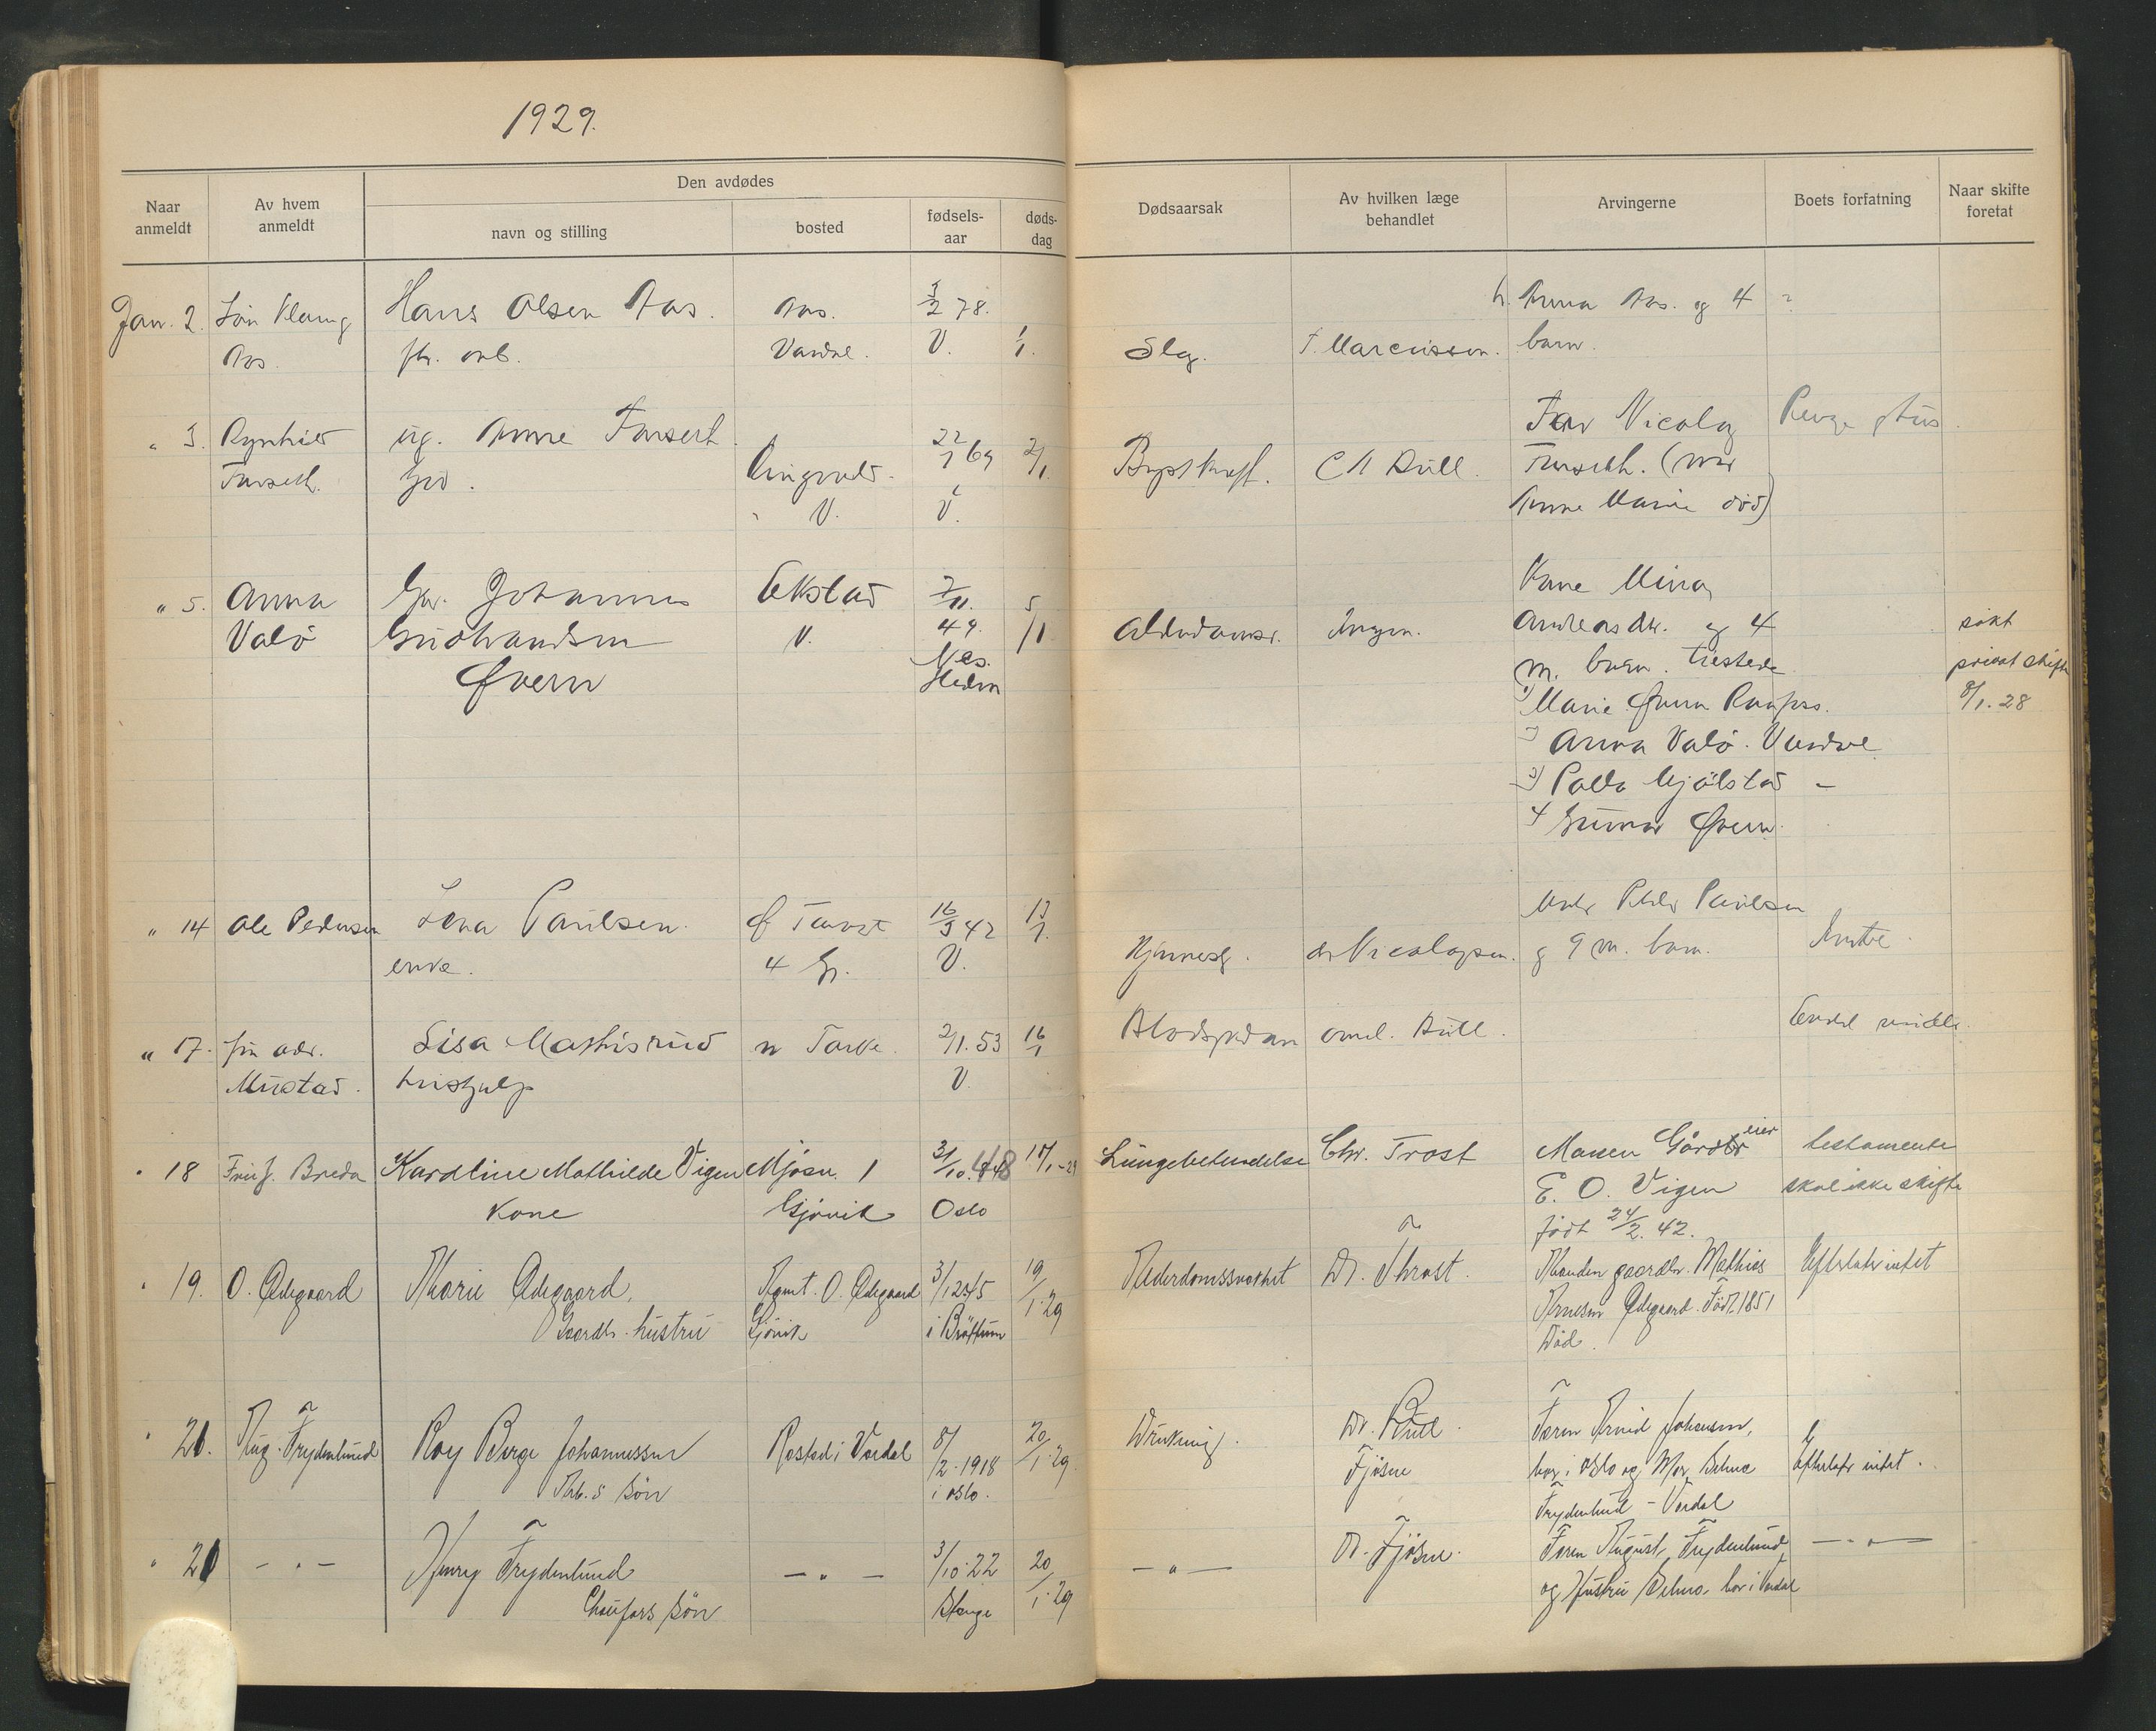 1929.
Naar anmeldt
Av hvem anmeldt
Den avdødes
navn og stilling
bosted
fødsels-aar
døds-dag
Dødsaarsak
Av hvilken læge behandlet
Arvingerne
Boets forfatning
Naar skifte foretat
Jan. 2.
Aas
Hans Olsen Aas.
Aas.
Vardal.
3/2 78.
V.
1/1.
Slag.
Marcussen.
Anna Aas. og 4
barn.
?
" 3.
ug. Anne
V.
22/1 69
V.
2/1
Brystkreft.
Bull.
Far Nicolay
(mor
Anne Marie død)
" 5.
Anna
Valø
Johannes
Gudbrandsen
Øvern
Ekstad
V.
7/11.
49.
Nes.
Hedm
5/1
Ingen.
Kone Mina
Andreasdtr. og 4
m. barn.
1) Marie Øvern
2) Anna Valø. Vardal
3) Palla Mjølstad -
4 Gunnar Øvern.
søkt
privat skifte
8/1. 28
" 14
Ole Pedersen
Lena Paulsen.
enke.
4 Gj.
16/9 42
V.
13/1.
dr Nicolaysen.
Peder Paulsen
g 9 m. barn.
Intet.
" 17.
Mustad.
Lisa Mathisrud
hushjelp
2/11. 53
V.
16/1
Bull.
" 18
J. Breda
Karoline Mathilde Vigen
Kone
Mjøsn. 1
Gjøvik
31/10. 48
Oslo
17/1-29
Lungebetendelse
Chr. Trost
Manen Gårdbr eier
E. O. Vigen
født 24/2. 42.
testamente
skal ikke skifte
" 19.
O. Ødegaard
Marie Ødegaard,
Gaardbr. hustru
Agent. O. Ødegaard
Gjøvik
3/12 45
i Brøttum
19/1-29
Alderdomssvakhet
Dr. Throst.
Manden gaardbr. Mathias
Arnesen Ødegaard. Født 1851
Død.
Efterlater intet
" 21.
Aug. Frydenlund
Roy Børge Johannessen
Arb.s Søn
Rostad i Vardal
8/2-1918
i Oslo.
20/1-29
Drukning.
Dr. Bull.
Fjøsne
Faren Arvid Johansen,
bor i Oslo og Mor Selma
Frydenlund - Vardal
Efterlater intet.
" 21
- " -
Henry Frydenlund
Chaufførs Søn
- " -
3/10-22
Stange
20/1-29
- " -
Dr. Fjøsne.
Faren August Frydenlund
og Hustru Selma bor i Vardal
- " -